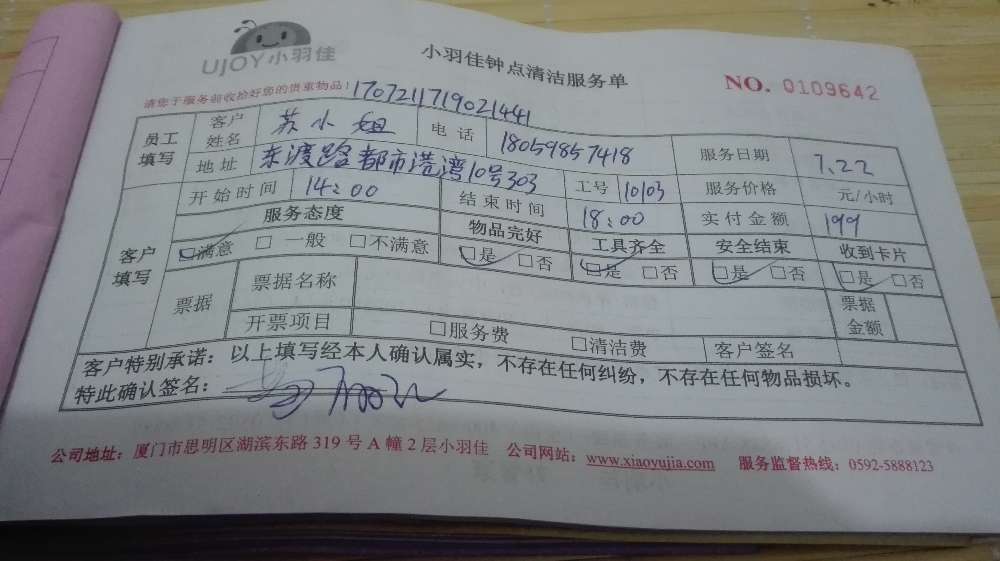 UJOY小羽佳
小羽佳钟点清洁服务单
NO. 0109642
请您于服务前收拾好您的贵重物品!
170721171902​1441
员工填写 客户姓名 苏小姐 电话 18059857418 服务日期 7.22
地址 东渡路都市港湾10号303 工号 1003 服务价格 元/小时
客户填写 开始时间 14:00 结束时间 18:00 实付金额 199
服务态度 物品完好 工具齐全 安全结束 收到卡片
□满意 □一般 □不满意 □是 □否 □是 □否 □是 □否 □是 □否
票据 票据名称 票据金额
开票项目 □服务费 □清洁费 客户签名
客户特别承诺:以上填写经本人确认属实,不存在任何纠纷,不存在任何物品损坏。
特此确认签名:
公司地址:厦门市思明区湖滨东路 319 号 A 幢 2 层小羽佳 公司网站:www.xiaoyujia.com 服务监督热线:0592-5888123